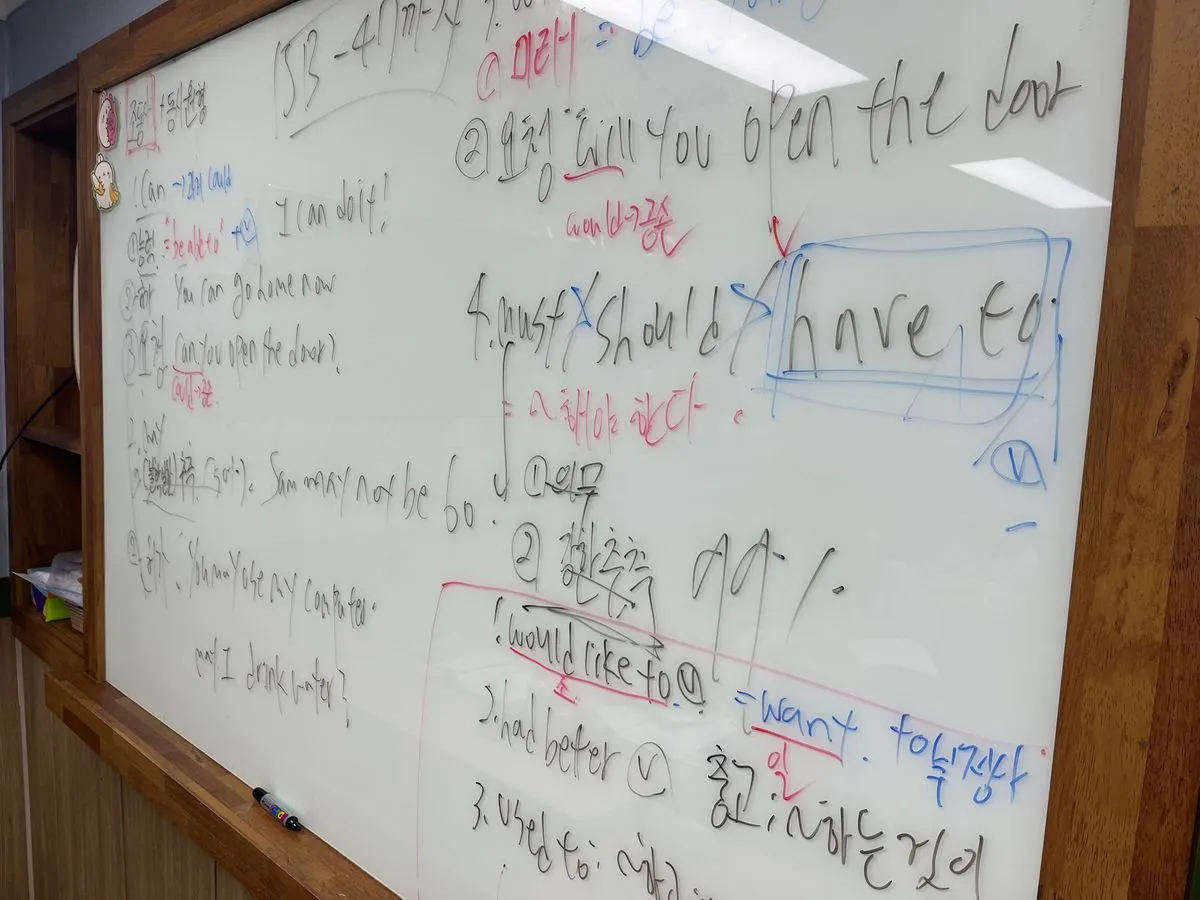 조동사 + 동사원형
1. Can → 과거 could
① 능력 = "be able to" + Ⓥ I can do it!
② 허 You can go home now
③ 요청 Can you open the door?
could → 공손.
2. may
추측 Sam may not be 60.
② 허가. You may use my computer.
may I drink water?
15B - 47까지
① 미래 = be
② 요청 Will you open the door
would → 공손
4. must / should / have to.
= ~해야 한다.
Ⓥ
① 의무
② 강한추측 99%.
1. would like to. Ⓥ = want. to부정사
조 일
2. had beter Ⓥ 충고 : ~하는 것이
3. used to :